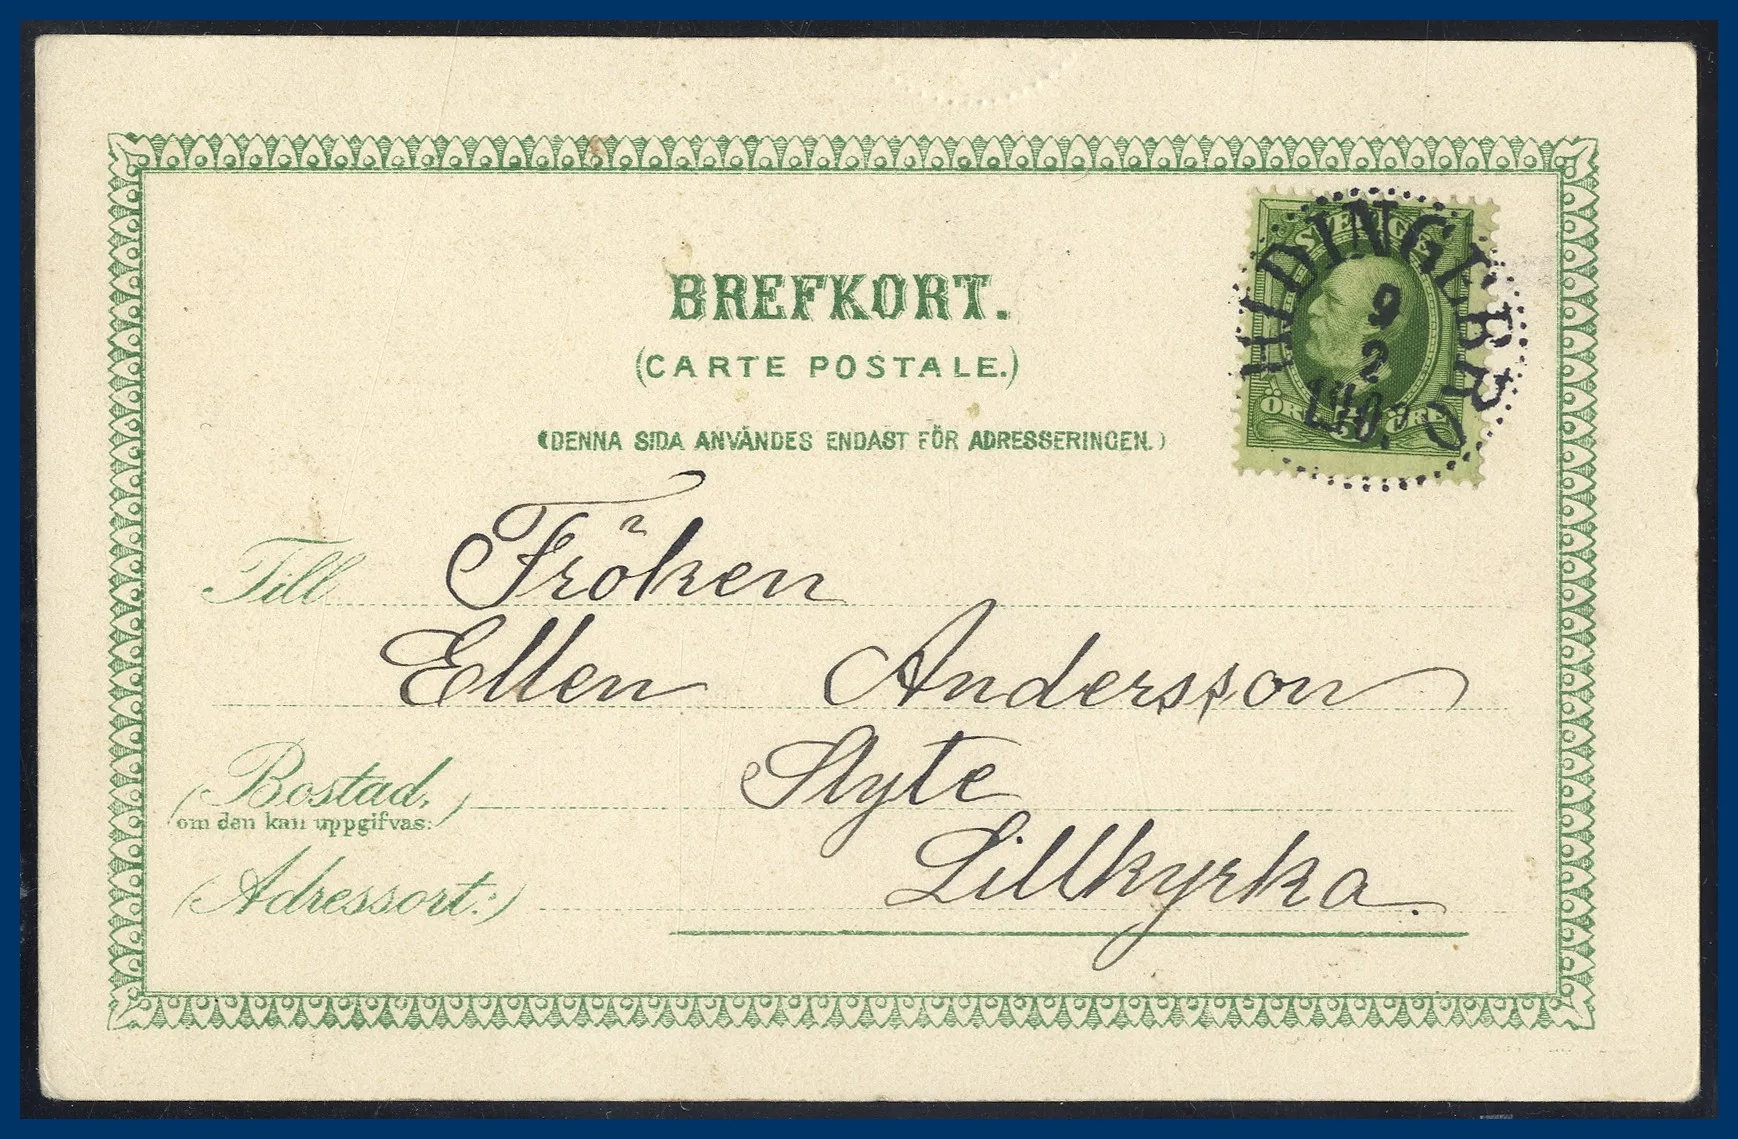 BREFKORT.
(CARTE POSTALE.)
(DENNA SIDA ANVÄNDES ENDAST FÖR ADRESSERINGEN.)
SVERIGE
HIDINGEBRO
9
2
ÖRE 5 ÖRE
Till Fröken
Ellen Andersson
(Bostad, Styte
om den kan uppgifvas:)
(Adressort:) Lillkyrka.